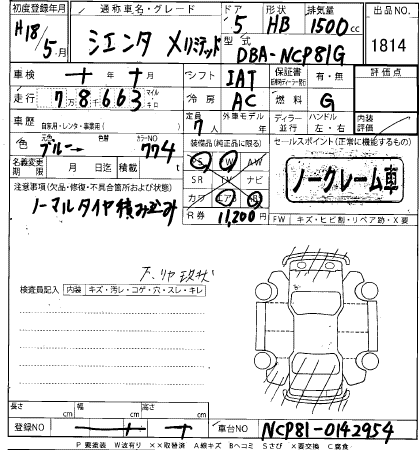 初度登録年月 通称車名・グレード ドア 形状 排気量 出品NO
H18/5月 シエンタ Xリミテッド 5 HB 1500cc
型式 DBA-NCP81G 1814
車検 年 月 シフト IAT 保証書 有・無 評価点
走行 78,663 マイル キロ 冷房 AC 燃料 G
車歴 自家用・レンタ・事業用( ) 定員 7人 外車モデル 年 ディーラー 並行 ハンドル 左・右 内装評価
色 ブルー 色替 カラーNO 774 装備品(純正品に限る) セールスポイント(正常に機能するもの)
PS PW AW
名義変更期限 月 日迄 積載 t SR TV ナビ ノークレーム車
注意事項(欠品・修復・不具合箇所および状態) カワ エアB
ノーマルタイヤ積み込み R券 11,200円
FW キズ・ヒビ割・リペア跡・X要
下、リヤ 現状
検査員記入 内装 キズ・汚レ・コゲ・穴・スレ・キレ
長さ cm 幅 cm 高さ cm
登録NO 車台NO NCP81-0142954
P 要塗装 W波有り ××取替済 A線キズ Bヘコミ Sさび X要交換 C腐食